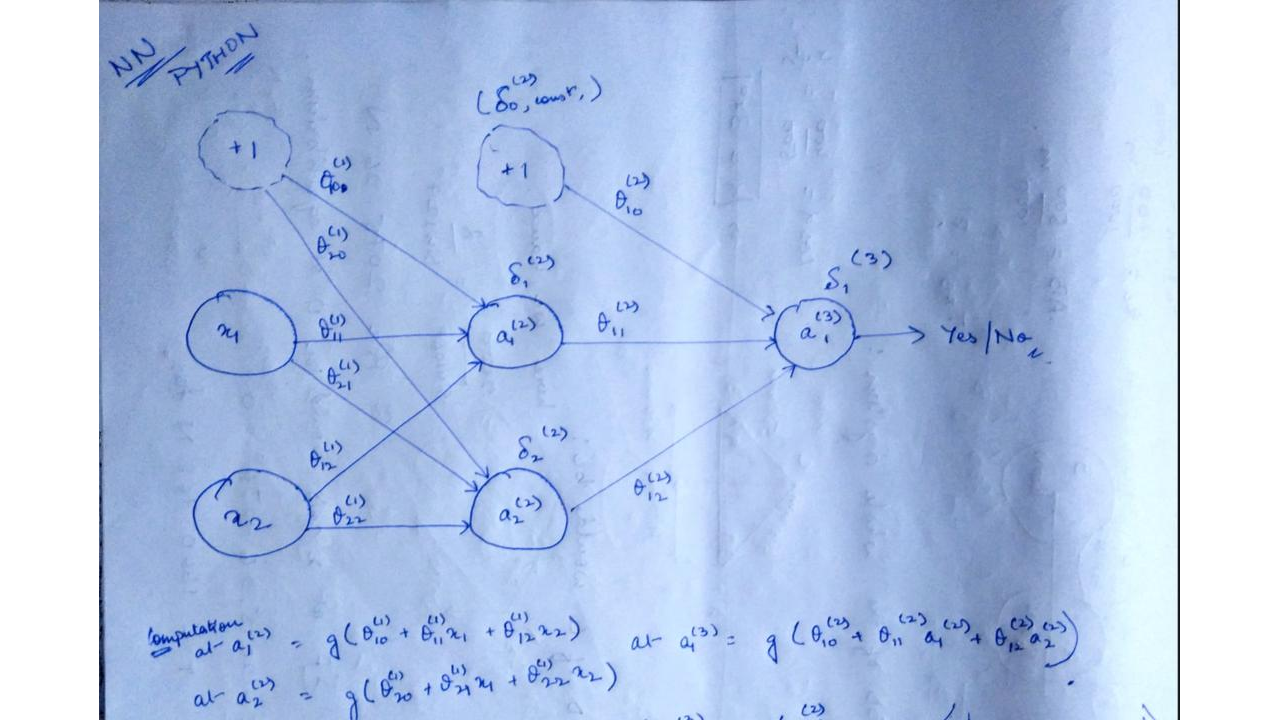 NN/
PYTHON
(δ₀⁽²⁾, const,)
+1
+1
θ₁₀⁽²⁾
θ₂₀⁽¹⁾
δ₁⁽²⁾
δ₁⁽³⁾
x₁
θ₁₁⁽¹⁾
a₁⁽²⁾
θ₁₁⁽²⁾
a₁⁽³⁾
Yes/No
θ₂₁⁽¹⁾
θ₁₂⁽¹⁾
δ₂⁽²⁾
x₂
θ₂₂⁽¹⁾
a₂⁽²⁾
θ₁₂⁽²⁾
Computation
at a₁⁽²⁾ = g(θ₁₀⁽¹⁾ + θ₁₁⁽¹⁾x₁ + θ₁₂⁽¹⁾x₂) at a₁⁽³⁾ = g(θ₁₀⁽²⁾ + θ₁₁⁽²⁾a₁⁽²⁾ + θ₁₂⁽²⁾a₂⁽²⁾)
at a₂⁽²⁾ = g(θ₂₀⁽¹⁾ + θ₂₁⁽¹⁾x₁ + θ₂₂⁽¹⁾x₂)